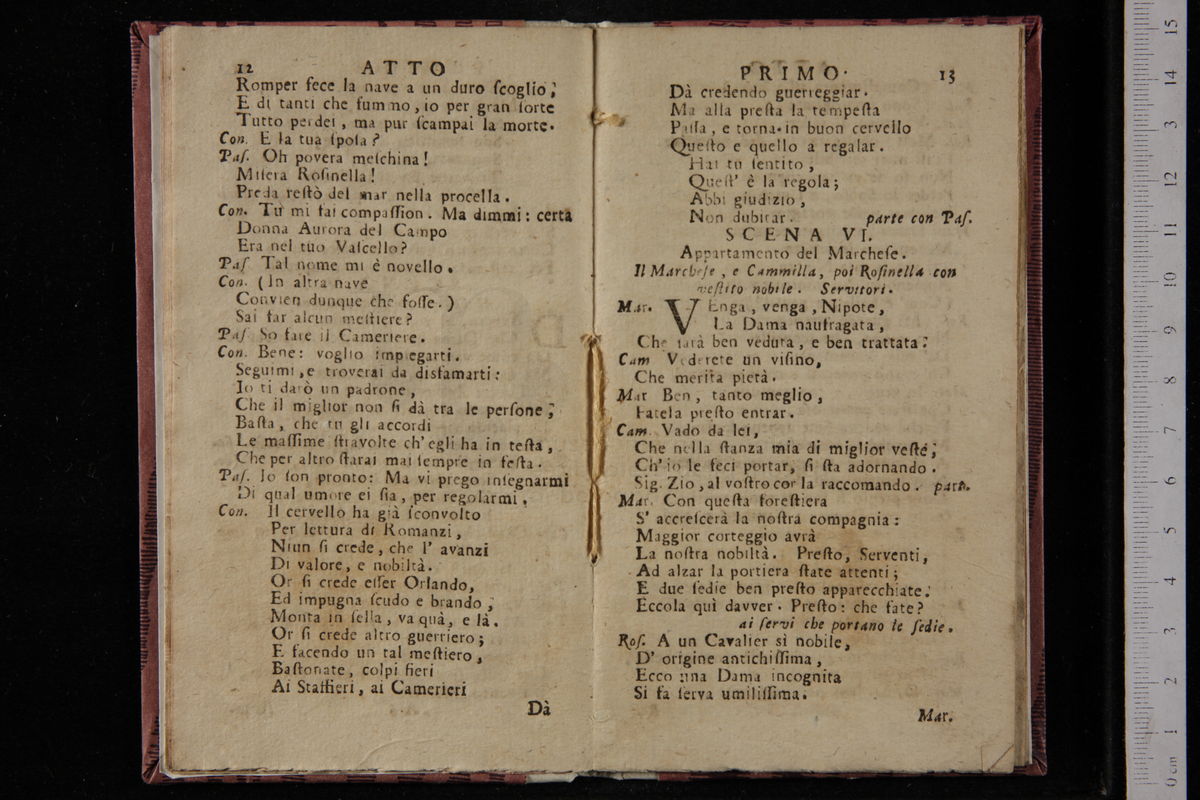 12 ATTO
Romper fece la nave a un duro ſcoglio;
E di tanti che fummo, io per gran ſorte
Tutto perdei, ma pur ſcampai la morte.
Con. E la tua ſpoſa?
Paſ. Oh povera meſchina!
Miſera Roſinella!
Preda reſtò del mar nella procella.
Con. Tù mi fai compaſſion. Ma dimmi: certa
Donna Aurora del Campo
Era nel tuo Vaſcello?
Paſ Tal nome mi è novello.
Con. (In altra nave
Convien dunque che foſſe.)
Sai far alcun meſtiere?
Paſ. So fare il Cameriere.
Con. Bene: voglio impiegarti.
Seguimi, e troverai da disfamarti:
Io ti darò un padrone,
Che il miglior non ſi dà tra le perſone;
Baſta, che tu gli accordi
Le maſſime ſtravolte ch' egli ha in teſta,
Che per altro ſtarai mai ſempre in feſta.
Paſ. Io ſon pronto: Ma vi prego inſegnarmi
Di qual umore ei ſia, per regolarmi.
Con. Il cervello ha già ſconvolto
Per lettura di Romanzi,
Niun ſi crede, che l' avanzi
Di valore, e nobiltà.
Or ſi crede eſſer Orlando,
Ed impugna ſcudo e brando;
Monta in ſella, va quà, e là.
Or ſi crede altro guerriero;
E facendo un tal meſtiero,
Baſtonate, colpi fieri
Ai Staffieri, ai Camerieri
Dà
PRIMO. 13
Dà credendo guerreggiar.
Ma alla preſta la tempeſta
Paſſa, e torna in buon cervello
Queſto e quello a regalar.
Hai tu ſentito,
Queſt' è la regola;
Abbi giudizio,
Non dubitar. parte con Paſ.
SCENA VI.
Appartamento del Marcheſe.
Il Marcheſe, e Cammilla, poi Roſinella con
veſtito nobile. Servitori.
Mar. VEnga, venga, Nipote,
La Dama naufragata,
Che ſarà ben veduta, e ben trattata:
Cam Vederete un viſino,
Che merita pietà.
Mar Ben, tanto meglio,
Fatela preſto entrar.
Cam. Vado da lei,
Che nella ſtanza mia di miglior veſte,
Ch' io le feci portar, ſi ſta adornando.
Sig. Zio, al voſtro cor la raccomando. parte.
Mar. Con queſta foreſtiera
S' accreſcerà la noſtra compagnia:
Maggior corteggio avrà
La noſtra nobiltà. Preſto, Serventi,
Ad alzar la portiera ſtate attenti;
E due ſedie ben preſto apparecchiate.
Eccola quì davver. Preſto: che fate?
ai ſervi che portano le ſedie.
Roſ. A un Cavalier sì nobile,
D' origine antichiſſima,
Ecco una Dama incognita
Si fa ſerva umiliſſima.
Mar.